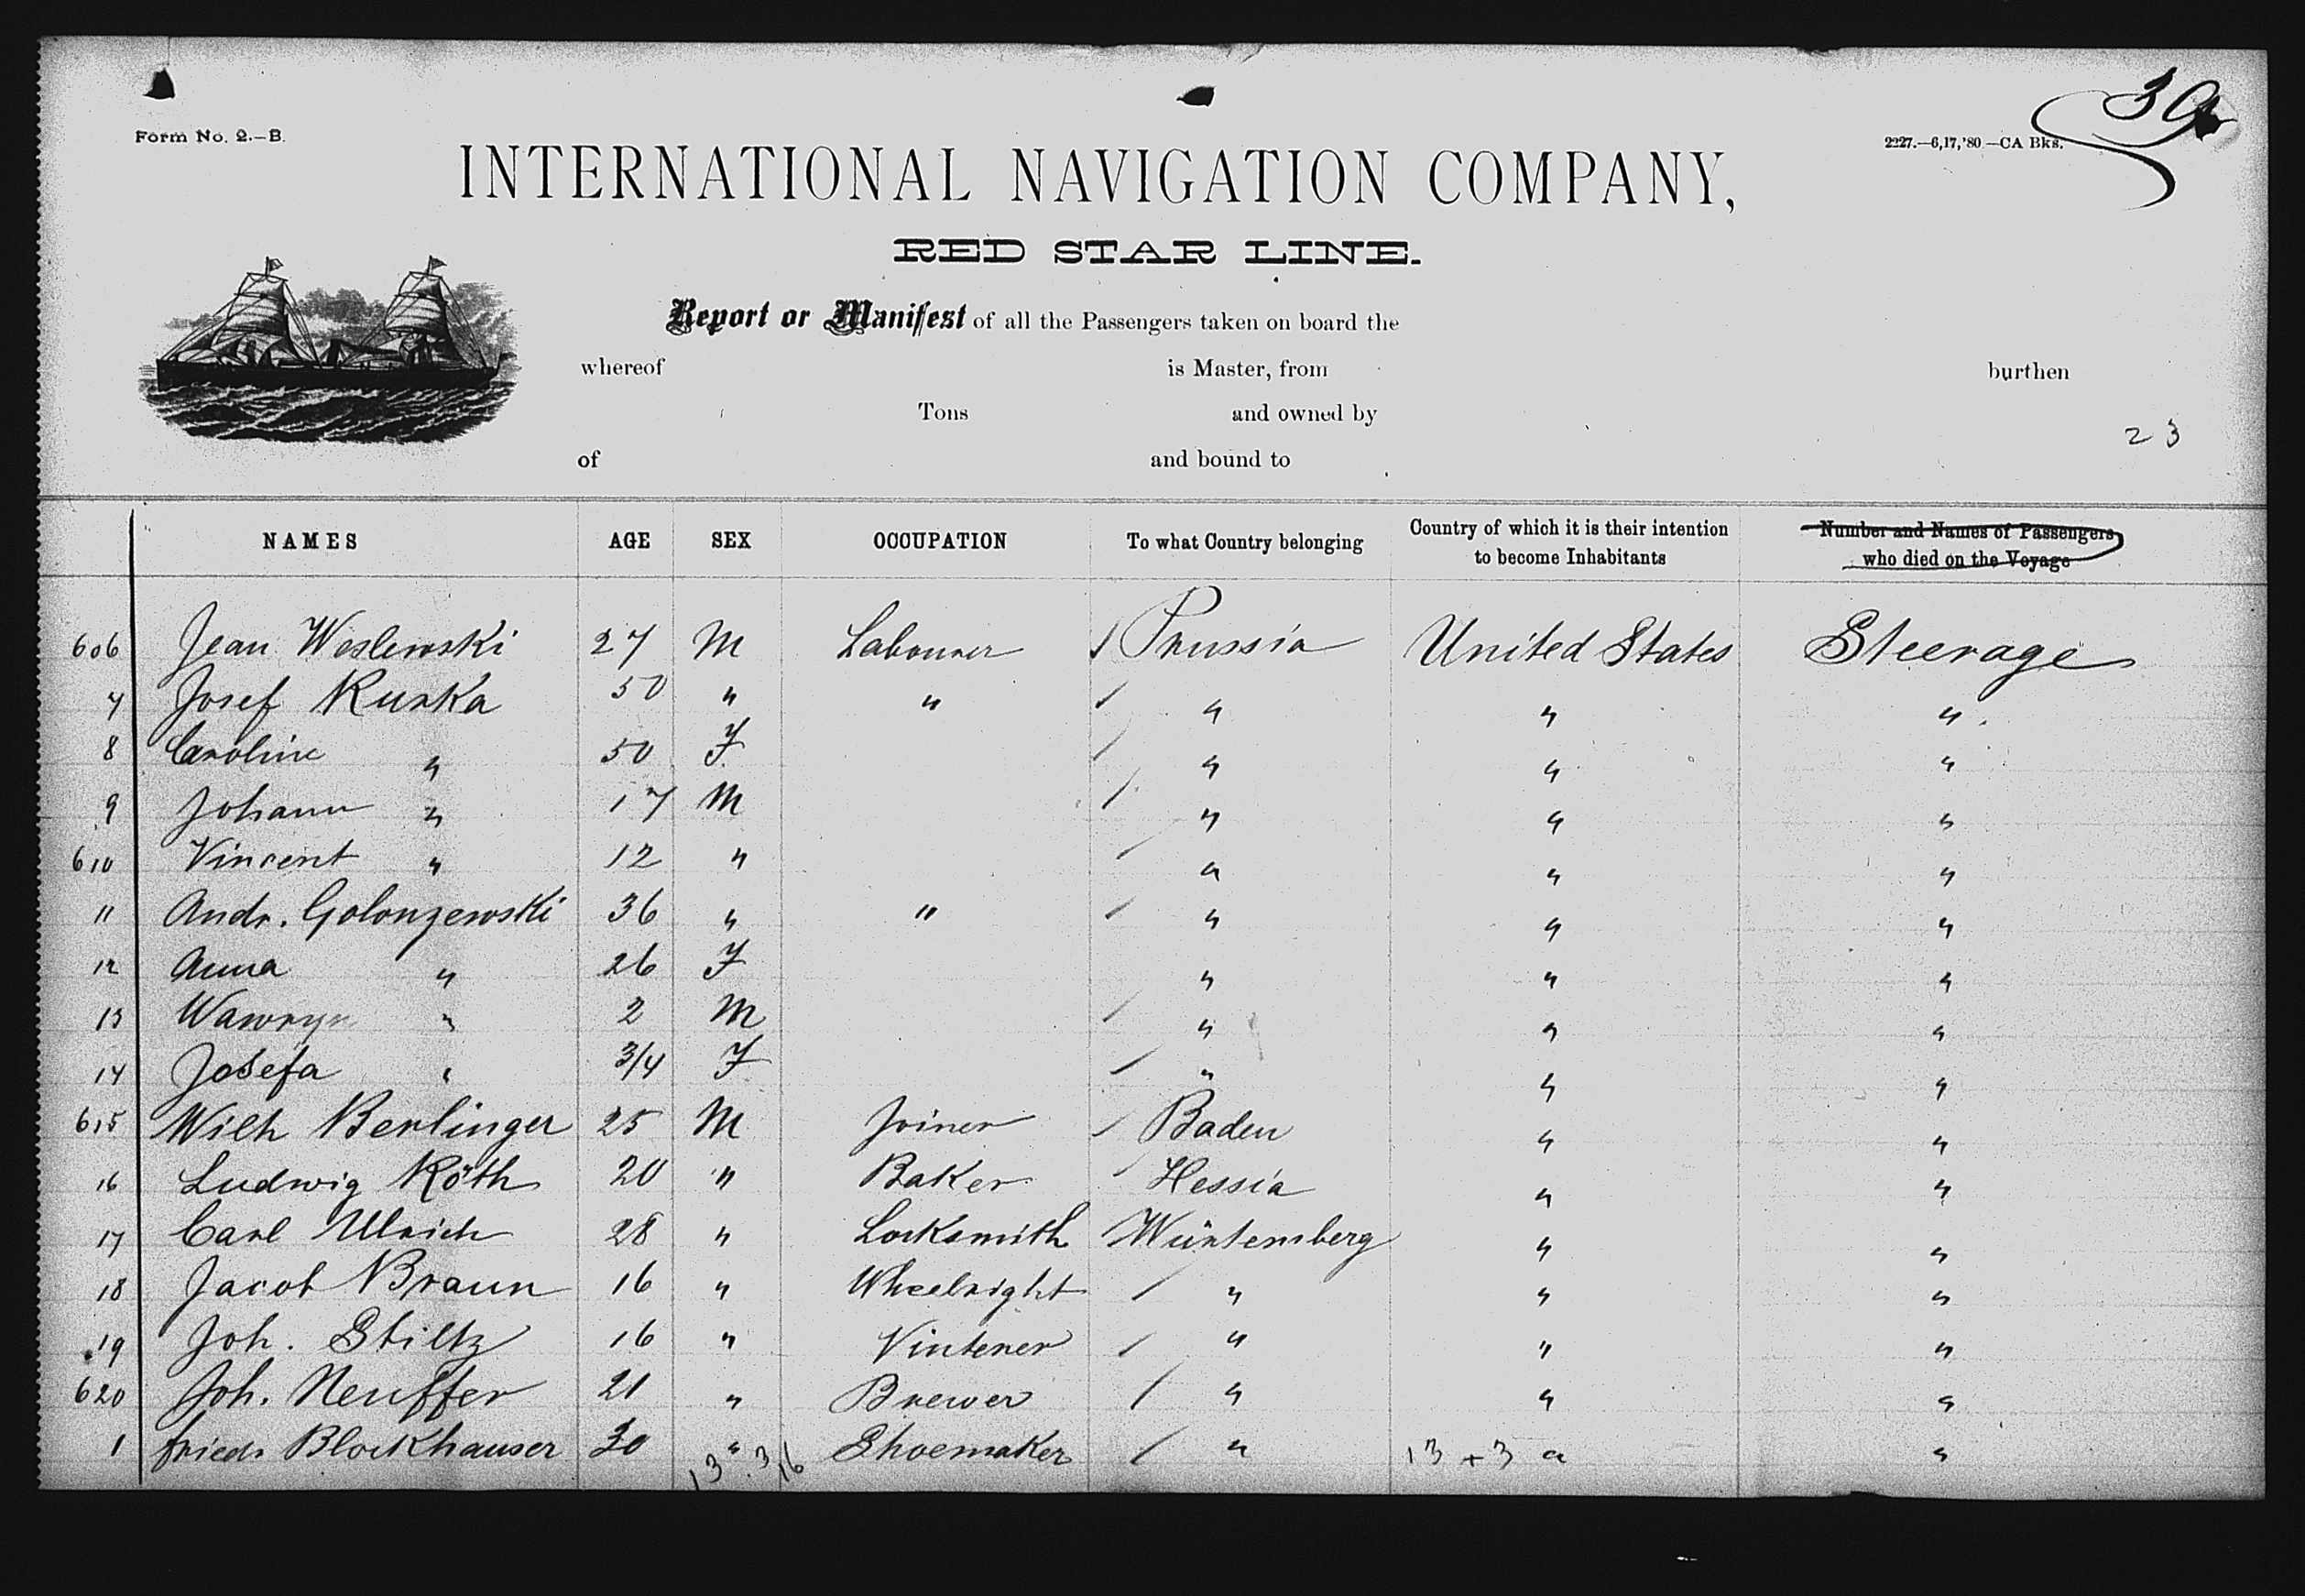 39
Form No. 2.—B.
2227.—6,17,'80—CA Bks.
INTERNATIONAL NAVIGATION COMPANY,
RED STAR LINE.
Report or Manifest of all the Passengers taken on board the
whereof is Master, from burthen
Tons and owned by
23
of and bound to
NAMES AGE SEX OCCUPATION To what Country belonging Country of which it is their intention to become Inhabitants Number and Names of Passengers who died on the Voyage
606 Jean Weslewski 27 M Labourer / Prussia United States Steerage
7 Josef Kurka 50 " " / " " "
8 Caroline " 50 F / " " "
9 Johann " 17 M / " " "
610 Vincent " 12 " / " " "
11 Andr. Golonzewski 36 " " / " " "
12 Anna " 26 F " " "
13 Wawryn " 2 M / " " "
14 Josefa " 3/4 F / " " "
615 Wilh Berlinger 25 M Joiner / Baden " "
16 Ludwig Röth 20 " Baker / Hessia " "
17 Carl Ulrich 28 " Locksmith / Würtemberg " "
18 Jacob Braun 16 " Wheelright / " " "
19 Joh. Stiltz 16 " Vintener / " " "
620 Joh. Neuffer 21 " Brewer / " " "
1 Friedr Blockhauser 30 " Shoemaker / " " "
13 . 3 16 13 + 3 a